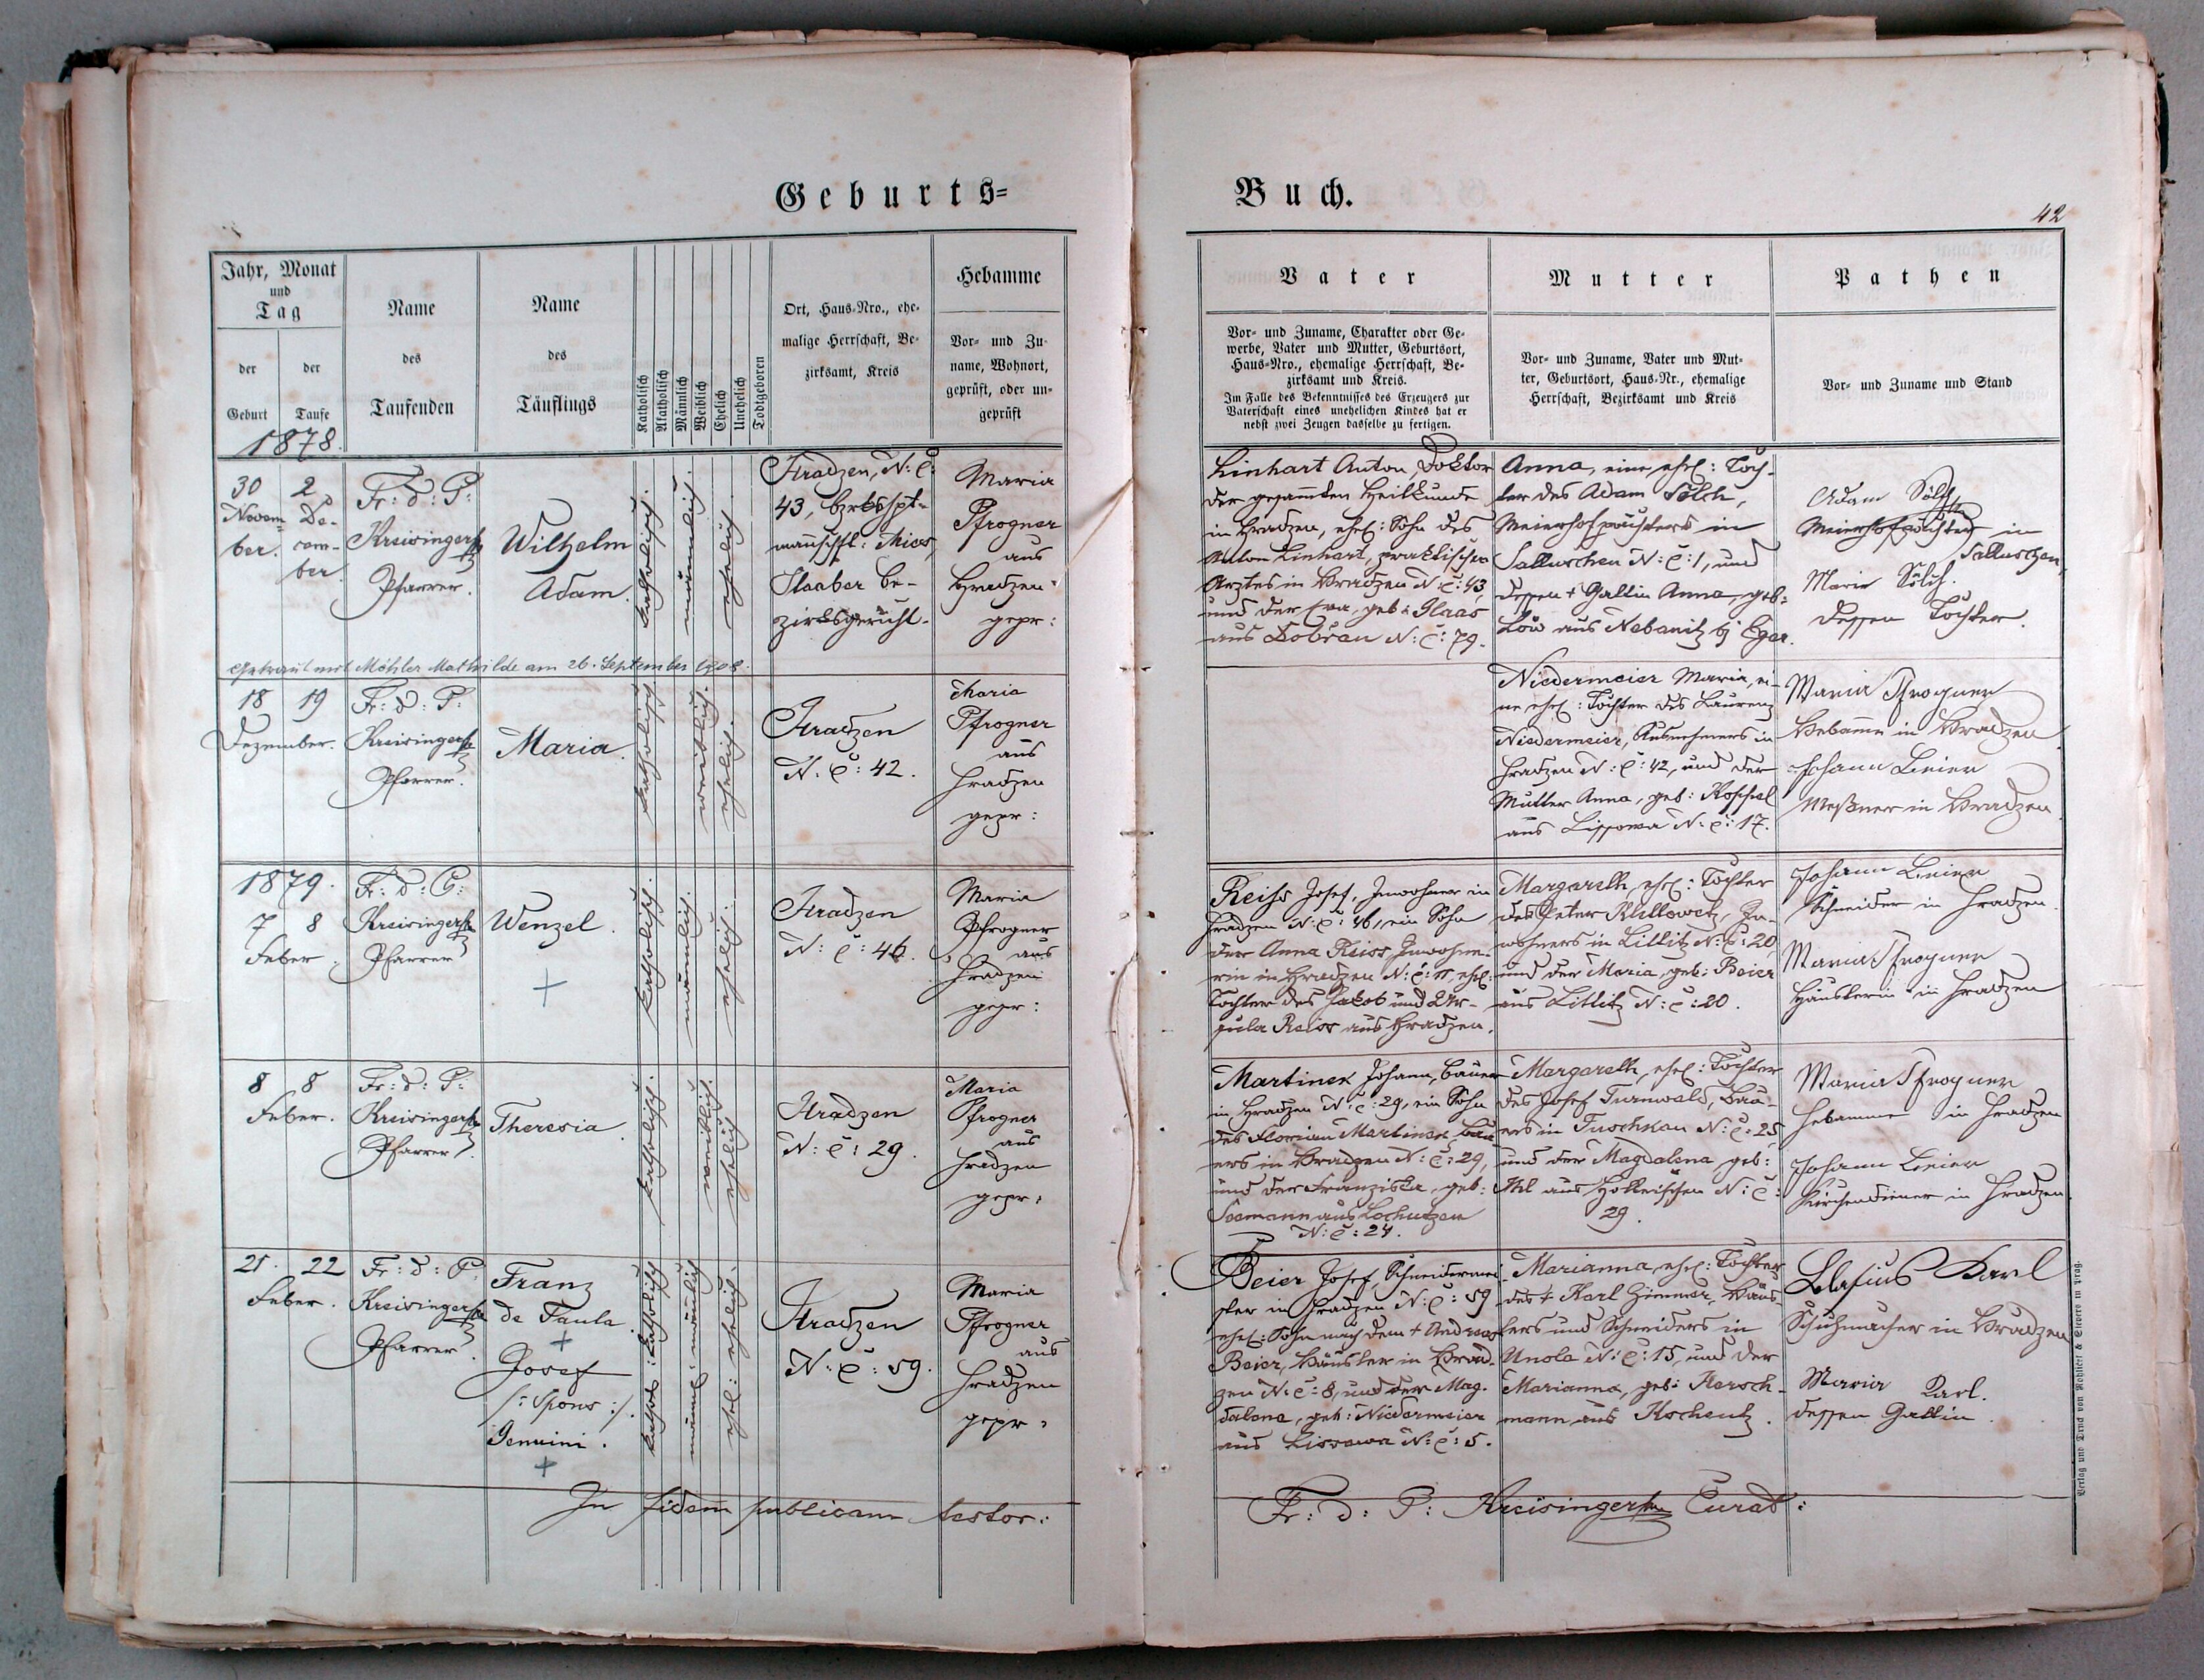 Geburts=
Buch.
42
Jahr, Monat
und
Tag
der
Geburt
der
Taufe
1878.
Name
des
Taufenden
Name
des
Täuflings
Katholisch
Akatholisch
Männlich
Weiblich
Ehelich
Unehelich
Todtgeboren
Ort, Haus-Nro., ehe-
malige Herrschaft, Be-
zirksamt, Kreis
Hebamme
Vor- und Zu-
name, Wohnort,
geprüft, oder un-
geprüft
Vater
Vor- und Zuname, Charakter oder Ge-
werbe, Vater und Mutter, Geburtsort,
Haus-Nro., ehemalige Herrschaft, Be-
zirksamt und Kreis.
Im Falle des Bekenntnisses des Erzeugers zur
Vaterschaft eines unehelichen Kindes hat er
nebst zwei Zeugen dasselbe zu fertigen.
Mutter
Vor- und Zuname, Vater und Mut-
ter, Geburtsort, Haus-Nr., ehemalige
Herrschaft, Bezirksamt und Kreis
Pathen
Vor- und Zuname und Stand
30
Novem=
ber.
2
De-
cem-
ber.
Fr: d: P:
Kreisinger
Pfarrer.
Wilhelm
Adam.
katholisch.
männlich.
ehelich
Hradzen, N: C:
43, bzrkshpt=
mannschft: Mies,
Staaber be-
zirksgericht.
Maria
Pfrogner
aus
Hradzen
gepr:
Linhart Anton, Doktor
der gesammten Heilkunde
in Hradzen, ehel: Sohn des
Anton Linhart, praktischen
Arztes in Hradzen N: C: 43,
und der Eva, geb: Glaas
aus Dobřan N: C: 79.
Anna, eine ehel: Toch-
ter des Adam Sölch,
Meierhofpächters in
Salluschen N: C: 1, und
dessen + Gattin Anna, geb:
Löw aus Nebanitz bj Eger.
Adam Sölch
Meierhofpächter in
Salluschen,
Marie Sölch.
dessen Tochter.
Getraut mit Möhler Mathilde am 26. September 1908.
18
19
Dezember.
Fr: d: P:
Kreisinger
Pfarrer.
Maria.
katholisch
weiblich.
ehelich.
Hradzen
N. C: 42.
Maria
Pfrogner
aus
Hradzen
gepr:
Niedermeier Maria, ei-
ne ehel: Tochter des Laurenz
Niedermeier, Ausnehmers in
Hradzen N: C: 42, und der
Mutter Anna, geb: Koppel
aus Lissowa N: C: 17.
Maria Pfrogner
Hebamme in Hradzen
Johann Beier
Meßner in Hradzen.
1879.
7
8
Feber.
Fr: d: P:
Kreisinger
Pfarrer
Wenzel.
+
katholisch.
männlich.
ehelich.
Hradzen
N: C: 46.
Maria
Pfrogner
aus
Hradzen
gepr:
Reiss Josef, Inwohner in
Hradzen N: C: 46, ein Sohn
der Anna Reiss, Inwohne-
rin in Hradzen N: C: 11, ehel:
Tochter des Jakob und Ur-
sula Reiss aus Hradzen.
Margareth, ehel: Tochter
des Peter Klillowetz, In-
wohners in Littitz N: C: 20,
und der Maria, geb: Beier
aus Littitz N: C: 20.
Johann Beier
Schneider in Hradzen.
Maria Pfrogner
Häuslerin in Hradzen
8
8
Feber.
Fr: d: P:
Kreisinger
Pfarrer.
Theresia.
katholisch.
weiblich.
ehelich
Hradzen
N: C: 29.
Maria
Pfrogner
aus
Hradzen
gepr:
Martinek Johann, Bauer
in Hradzen N: C: 29, ein Sohn
des Florian Martinek, Bau-
ers in Hradzen N: C: 29,
und der Franziska, geb:
Seemann aus Lochutzen
N: C: 24.
Margareth, ehel: Tochter
des Josef Turnwald, Bau-
ers in Tuschkau N: C: 25
und der Magdalena, geb:
aus Holleischen N: C:
29.
Maria Pfrogner
Hebamme in Hradzen
Johann Beier
Kirchendiener in Hradzen.
21.
22
Feber.
Fr: d: P:
Kreisinger
Pfarrer.
Franz
de Paula
+
Josef
/: Spons :/.
Gemini.
+
kathol: katholisch
männl: männlich
ehel: ehelich.
Hradzen
N: C: 59.
Maria
Pfrogner
aus
Hradzen
gepr:
Beier Josef, Schneidermei-
ster in Hradzen N: C: 59
ehel: Sohn nach dem + Andreas
Beier, Häusler in Hrad-
zen N: C: 8, und der Mag-
dalena, geb: Niedermeier
aus Lissowa N: C: 5.
Marianna, ehel: Tochter
des + Karl Zimmer, Häus-
lers und Schneiders in
Unola N: C: 15, und der
Marianna, geb: Hersch-
mann aus Kscheutz.
Blasius Karl
Schuhmacher in Hradzen
Maria Karl.
dessen Gattin.
In fidem publicam testor:
Fr: d: P: Kreisinger Curat:
Verlag und Druck von Rohliček & Sievers in Prag.